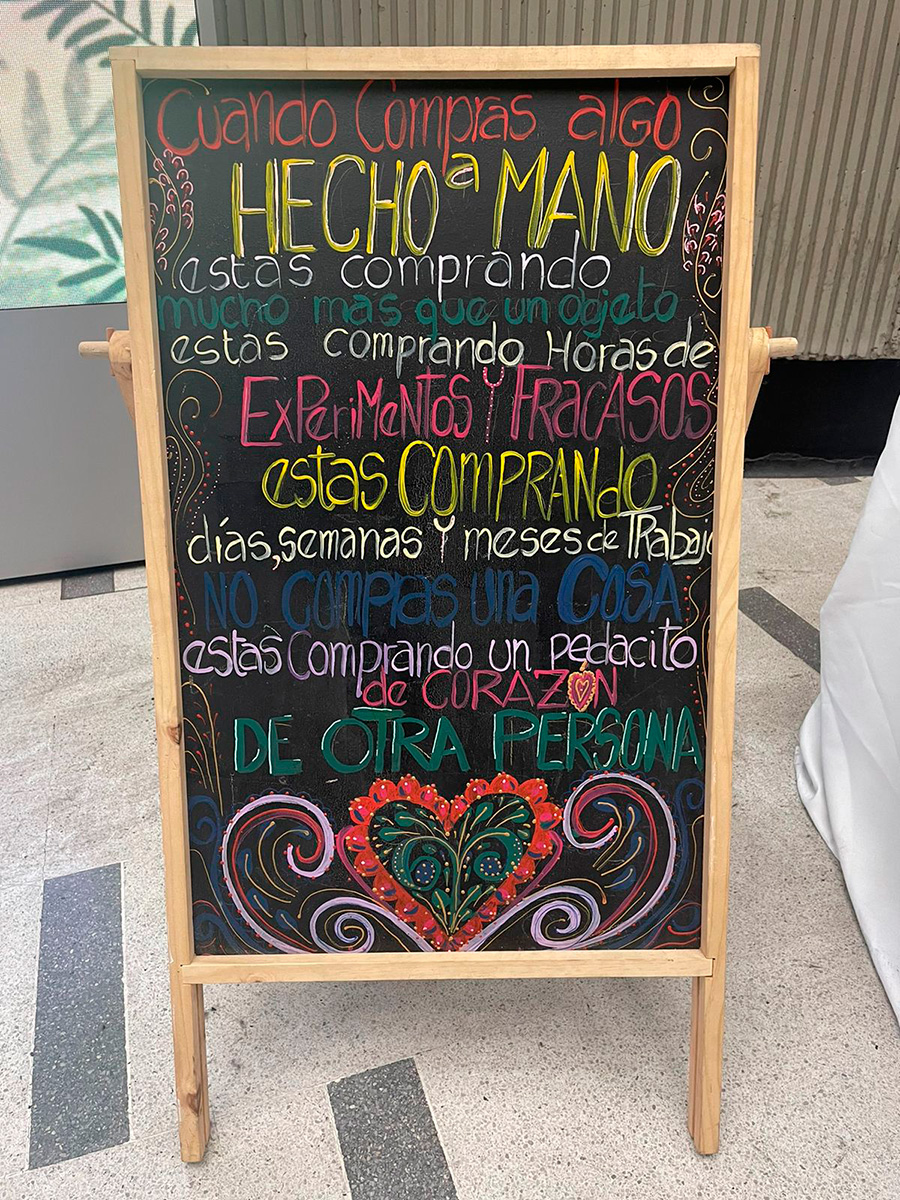 Cuando Compras algo
HECHO a MANO
estas comprando
mucho mas que un objeto
estas comprando Horas de
ExPeriMeNtos Y FRACASOS
estas COMPRANdO
días, semanas Y meses de TRabajo
NO COMPRAS Una COSA
estas Comprando un pedacito
de CORAZON
DE OTRA PERSONA